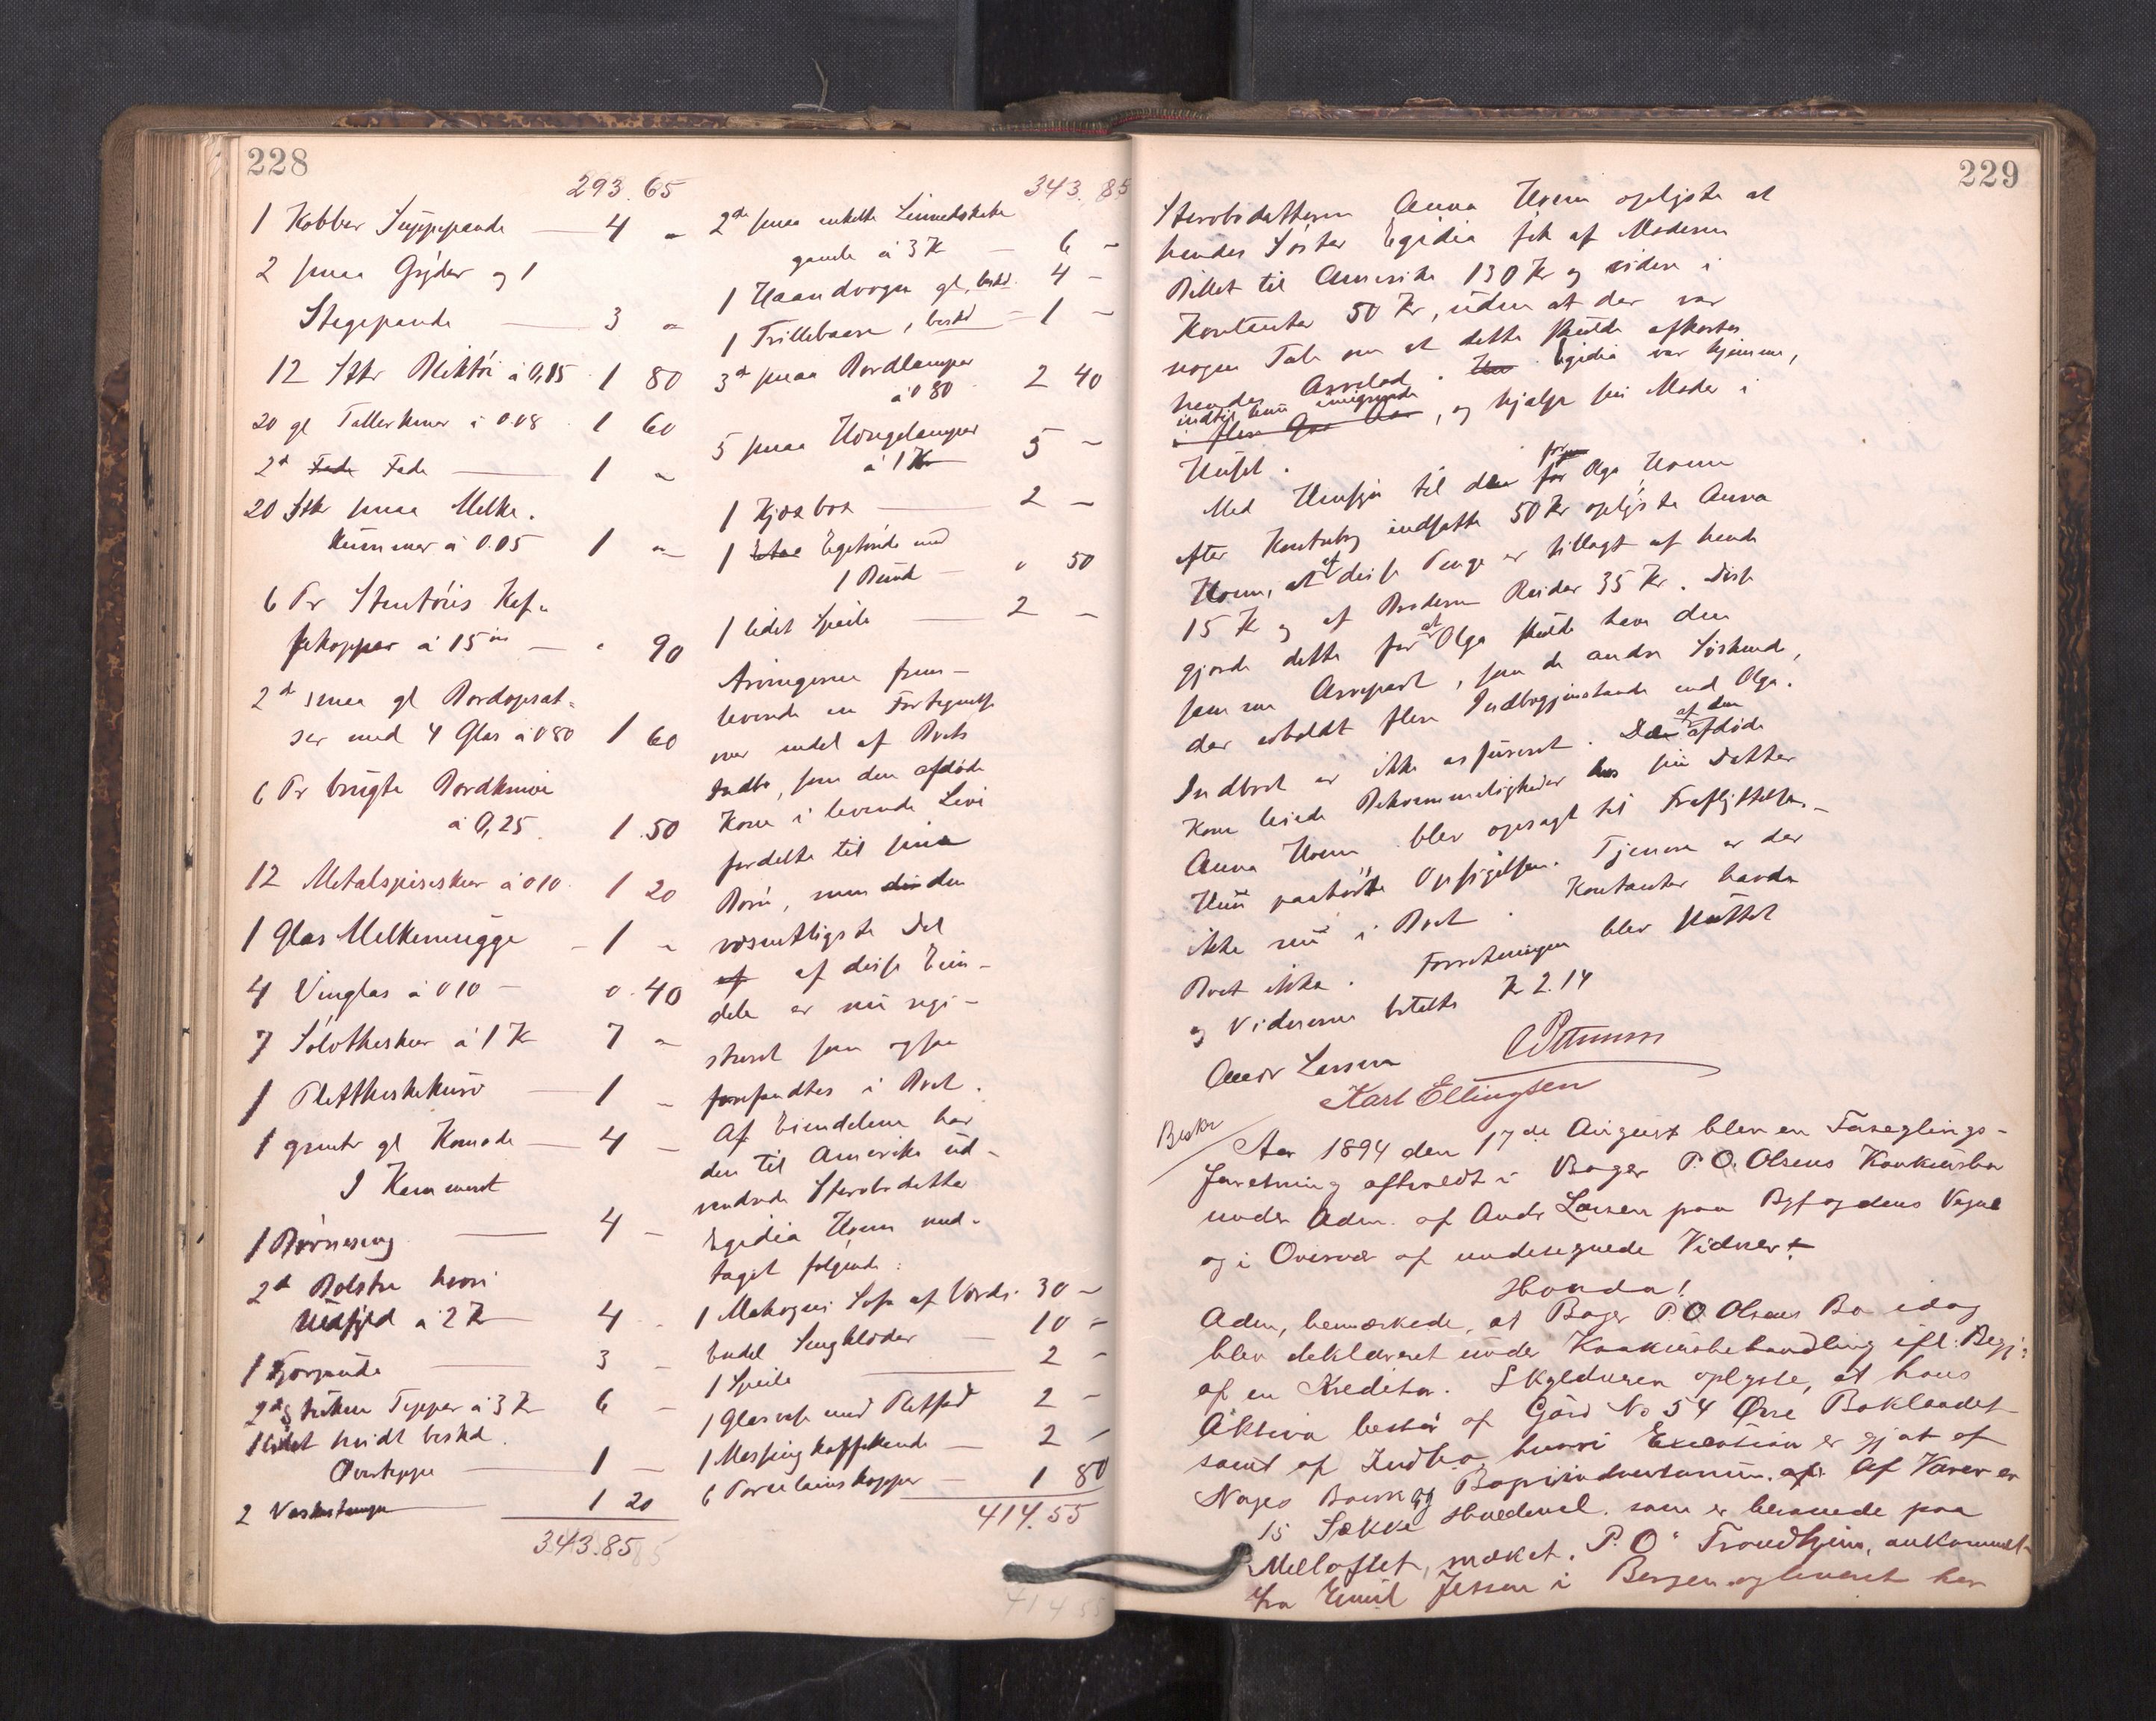 228
293.65
1 Kobber Suppepande — 4 "
2 smaa Gryder og 1
Stegepande — 3 "
12 Stkr Bliktøi à 0,15 1 80
20 gl Tallerkener à 0.08 1 60
2d Fade Fade — 1 "
20 Stk smaa Melke.
Kummer à 0.05 1 "
6 Pr Stentøis Kaf-
fekopper à 15 øre — " 90
2d smaa gl Bordopsat-
ser med 4 Glas à 080 1 60
6 Pr brugte Bordknive
à 0,25 1.50
12 Metalspiseskeer à 010 1 20
1 Glas Melkemugge — 1 "
4 Vinglas à 010 — 0.40
7 Sølvtheskeer à 1 Kr 7 "
1 Pletthekekurv — 1 "
1 gl Komode — 4 —
I Kammeret
1 Børneseng — 4 —
2d Bolstre hvori
Udfyld à 2 Kr — 4 "
1 Hovedpude — 3 —
2d Tepper à 3 Kr 6 —
1 lidet hvidt beskd.
Overteppe — 1 —
2 Vaskestamper — 1 20
343.85
343.85
2de smaa enkelte Linnedskabe
gamle à 3 Kr — 6 —
1 Haandvogn gl, beskd. 4 —
1 Trillebaare, beskd — 1 —
3d smaa Bordlamper
à 0 80 2 40
5 smaa Hængelamper
à 1 Kr 5 —
1 Kjøkbor — 2 —
1 Egetønde med
1 Bund — " 50
1 lidet Speile — 2 —
Arvingerne frem-
leverede en Fortegnelse
over endel af Boets
Indbo, som den afdøde
Kone i levende Live
fordelte til sine
Børn, men den
væsentligste Del
af af disse Eien-
dele er nu regi-
streret som ogsaa
forefandtes i Boet.
Af Eiendelene har
den til Amerika ud-
vandrede Stervbodatter
Egidia Hoem mod-
taget følgende:
1 Mahogni Sofa af Værdi. 30 —
Endel Sengklæder — 10 —
1 Speile — 2 —
1 Glasvase med Pletfod 2 —
1 Messingkaffekande — 2 —
6 Porcelainskopper — 1 80
414.55
229
Stervbodatteren Anna Hoem oplyste at
hendes Søster Egidia fik af Moderen
Billet til Amerika 130 Kr og videre i
Kontanter 50 Kr, uden at der var
nogen Tale om at dette skulde afkortes
hendes Arvelod. Hun Egidia var hjemme,
indtil hun emigrerede
i flere Aar, og hjalp sin Moder i
Huset.
Med Hensyn til den for Olga Hoem
efter Kontrabog indsatte 50 Kr oplyste Anna
Hoem, at af disse Penge er tillagt af hende
15 Kr og af Broderen Reidar 35 Kr. Disse
gjorde dette for at Olga skulde have den
samme Arvepart, som de andre Søskende,
der erholdt flere Indbogjenstande end Olga.
Indboet er ikke assureret. Den af den afdøde
Kone leiede Bekvemmeligheder hos sin Datter
Anna Hoem blev opsagt til Fraflyttelse. —
Hun paahørte Opsigelsen. Tjenere er der
ikke nu i Boet. Kontanter havde
Boet ikke. Forretningen blev sluttet
og Vidnerne betalte Kr 2.14
Andr Larsen
Karl Ellingsen
Beskr
Aar 1894 den 17de August blev en Forseglings-
forretning afholdt i Bager P. O. Olsens Konkursbo
under Adm. af Andr Larsen paa Byfogdens Vegne
og i Overvær af undetegnede Vidner.
Hvorda!
Adm, bemærkede, at Bager P. O Olsens Bo idag
blev deklareret under Konkursbehandling ifl: Begj:
af en Kreditor. Skyldneren oplyste, at hans
Aktiva bestaar af Gård No 54 Øvre Baklandet
samt af Indbo, hvori Execution er gjort af
Noges Bank og Bageriindventarium. Af Varer er
15 Sække Hvedemel. som er beroende paa
Melloftet, mærket. P. O" Trondhjem, ankommet
fra Emil Jessen i Bergen og leveret her